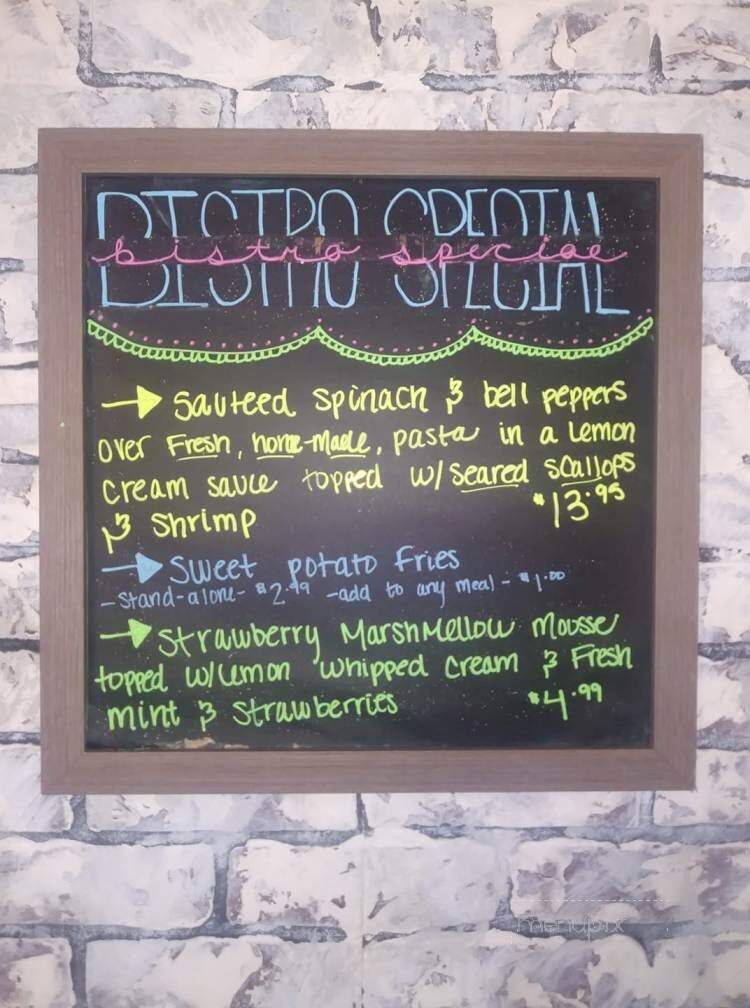 BISTRO SPECIAL
bistro special
→ Sauteed spinach & bell peppers
over Fresh, home-made, pasta in a Lemon
Cream sauce topped w/ seared scallops
& Shrimp $13.95
→ Sweet potato Fries
- Stand-alone - $2.99 - add to any meal - $1.00
→ Strawberry Marshmellow Mousse
topped w/ Lemon whipped cream & Fresh
mint & Strawberries $4.99
menupix